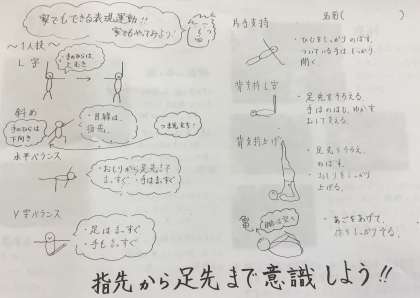 家でもできる表現運動!!
家でもやってみよう!
〜1人技〜
L字
手のひらは
上むき
斜め
手のひらは
下向き
・目線は、
指先。
つま先立ち!
水平バランス
・おしりから足先まで
まっすぐ・手はまっすぐ
V字バランス
・足はまっすぐ
・手もまっすぐ
片手支持
名前( )
・ひじをしっかりのばす。
ついている手はしっかり
開く。
背支持L字
・足先をそろえる。
手はのばし、ゆかを
おして支える。
背支持上げ
・足先をそろえ、
のばす。
・おしりをしっかり
上げる。
亀
・あごをあげて、
指先から足先まで意識しよう!!